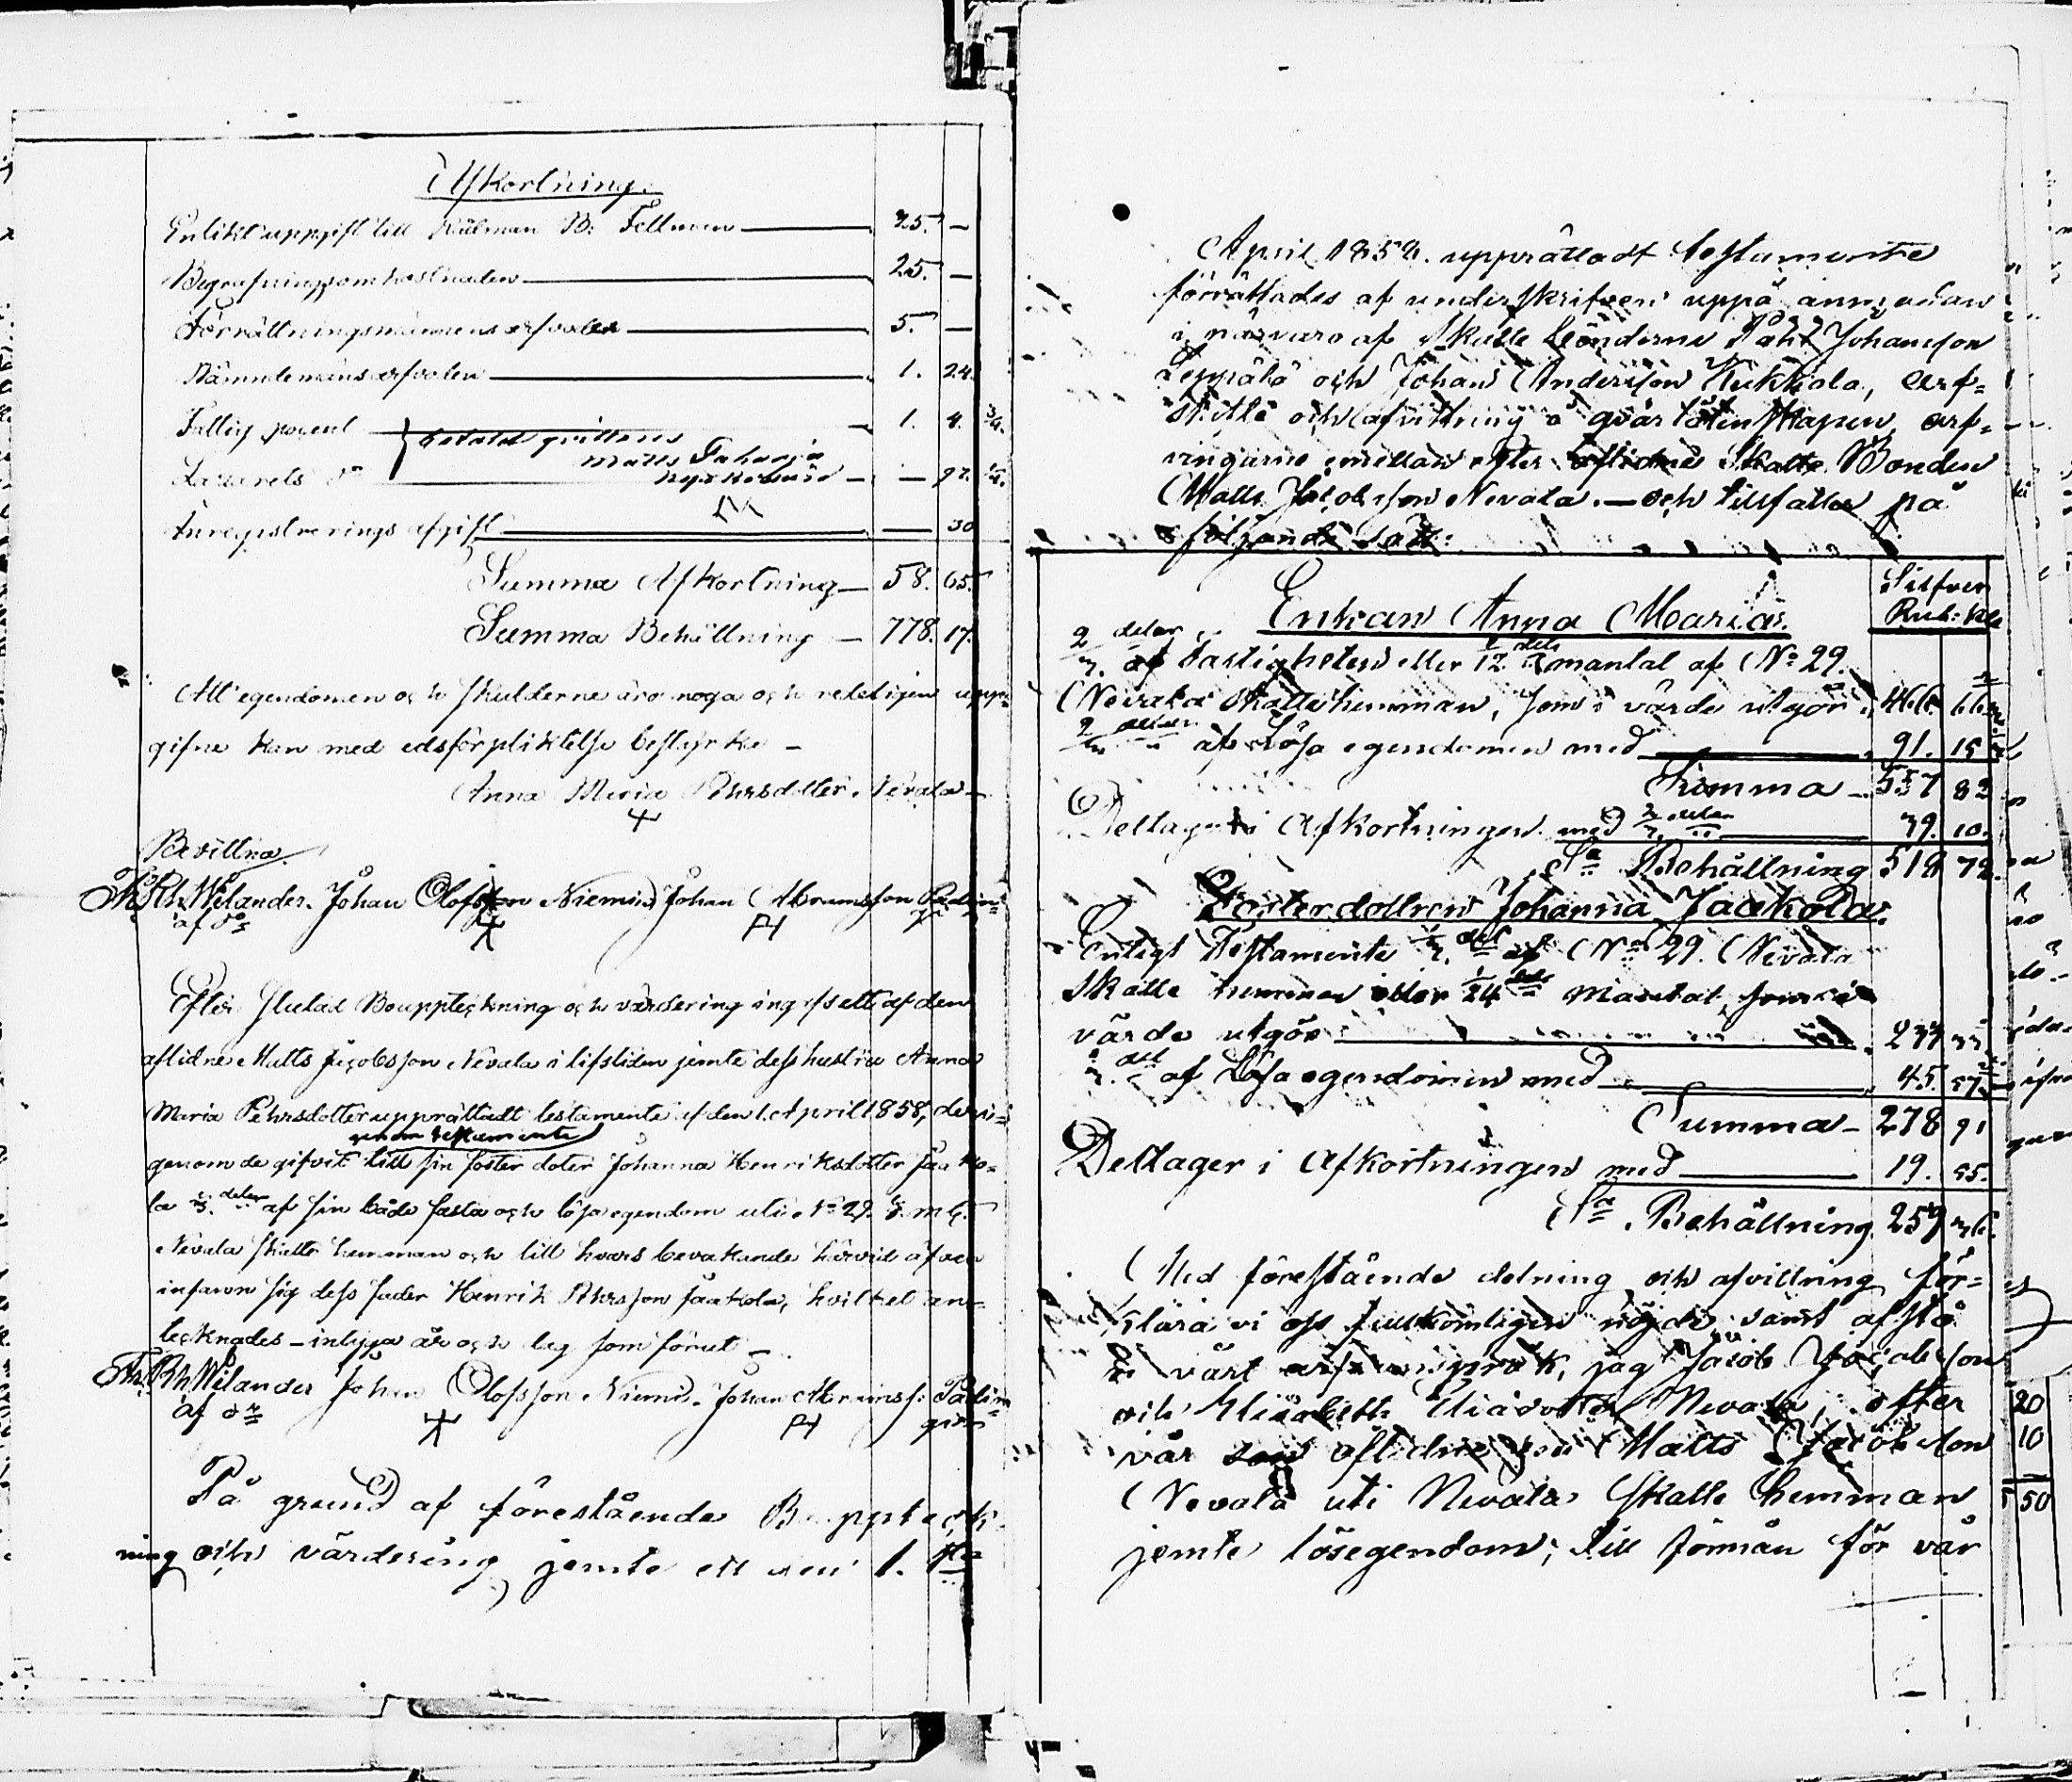 Afkortning.
Enlikt uppgift till Rålman B. Fellman — 25. —
Begrafningsomkostnaden — 25. —
Förrättningsmännens arfvoden — 5. —
Nämndemäns arfvoden — 1. 24.
Fattig procent — 1. 4. 3/4.
betald qvitteras
Matts
Lazarets do — — 97. 1/4.
Inregistrerings afgift — — 30
Summa Afkortning — 58. 65.
Summa Behållning — 778. 17.
Att egendomen och skulderna äro noga och redeligen upp-
gifne kan med edsförpliktelse bestyrka —
Anna Maria Pehrsdotter Nevala —
Bevittna
Fr. Rh. Wilander. Johan Olofsson Niemi Johan Abramsson
af do
Efter slutad Bouppteckning och värdering ingifsett af den
aflidne Matts Jacobsson Nevala i lifstiden jemte dess hustru Anna
Maria Pehrsdotter upprättadt testamente af den 1. April 1858,
genom testamente
genom de gifvit till sin foster doter Johanna Henriksdotter Jaako-
la delar af sin både fasta och lösa egendom uti No 29.
Nevala skatte hemman och till hvars bevakande härvid äfven
infann sig dess fader Henrik Pehrsson Jaakola, hvilket an-
tecknades — inlyga år och dag som förut —
Fr. Rh. Wilander Johan Olofsson Niemi. Johan Abramss:
af do
På grund af förestående Boupptäck-
ning och värdering jemte ett den 1. sta
April 1858. upprättadt testamente
förrättades af underskrifven uppå anmodan
i närvaro af Skatte bönderne Påhl Johansson
Leppälä och Johan Andersson Kukkola, arf-
skifte och afvittring å qvarlåtenskapen arf-
vingarne emillan efter aflidne Skatte Bonden
Matts Jacobsson Nevala. — och tillfaller på
följande sätt:
Silfver
Rub: Kk
Enkan Anna Maria.
2/3 delar af fastigheten eller 1/12 dels mantal af No 29.
Nevala Skatte hemman, som i värde utgör 466. 66
2/3 delar af lösa egendomen med — 91. 15
Summa — 557 82
Deltager i Afkortningen med 2/3 delar — 39. 10.
Sa Behållning 518 72.
Fosterdottren Johanna Jaakola.
Enligt Testamente 1/3 del af No 29. Nevala
Skatte hemman eller 1/24 dels Mantal, som i
värde utgör — 233 33
1/3 del af Lösa egendomen med — 45. 57
Summa — 278 91
Deltager i Afkortningen med — 19. 55.
Sa Behållning 259 36.
Med förestående delning och afvittring för-
klara vi oss fullkomligen nöjde samt afstå
vårt arfsanspråk, jag Jacob Jacobsson
och Elisabeth Eliasdotter Nevala, efter
vår son aflidne Matts Jacobsson
Nevala uti Nevala Skatte hemman
jemte lösegendom; till förmån för vår
20
10
50